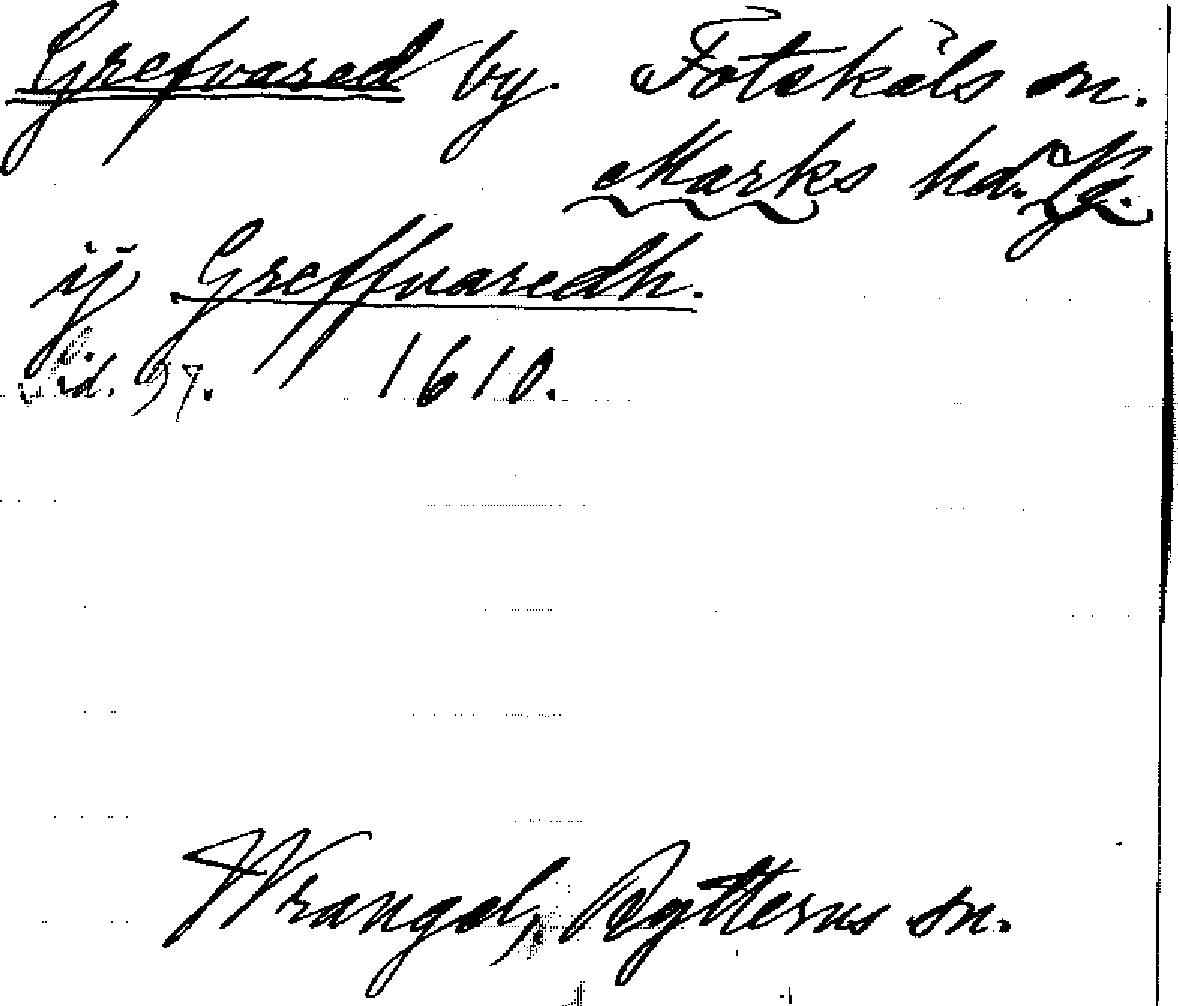 Grefvared by. Fotskäls sn.
Marks hd. Vg.
ij Greffvaredh.
Sid. 37. 1610.
Wrangel, Rytterns sn.